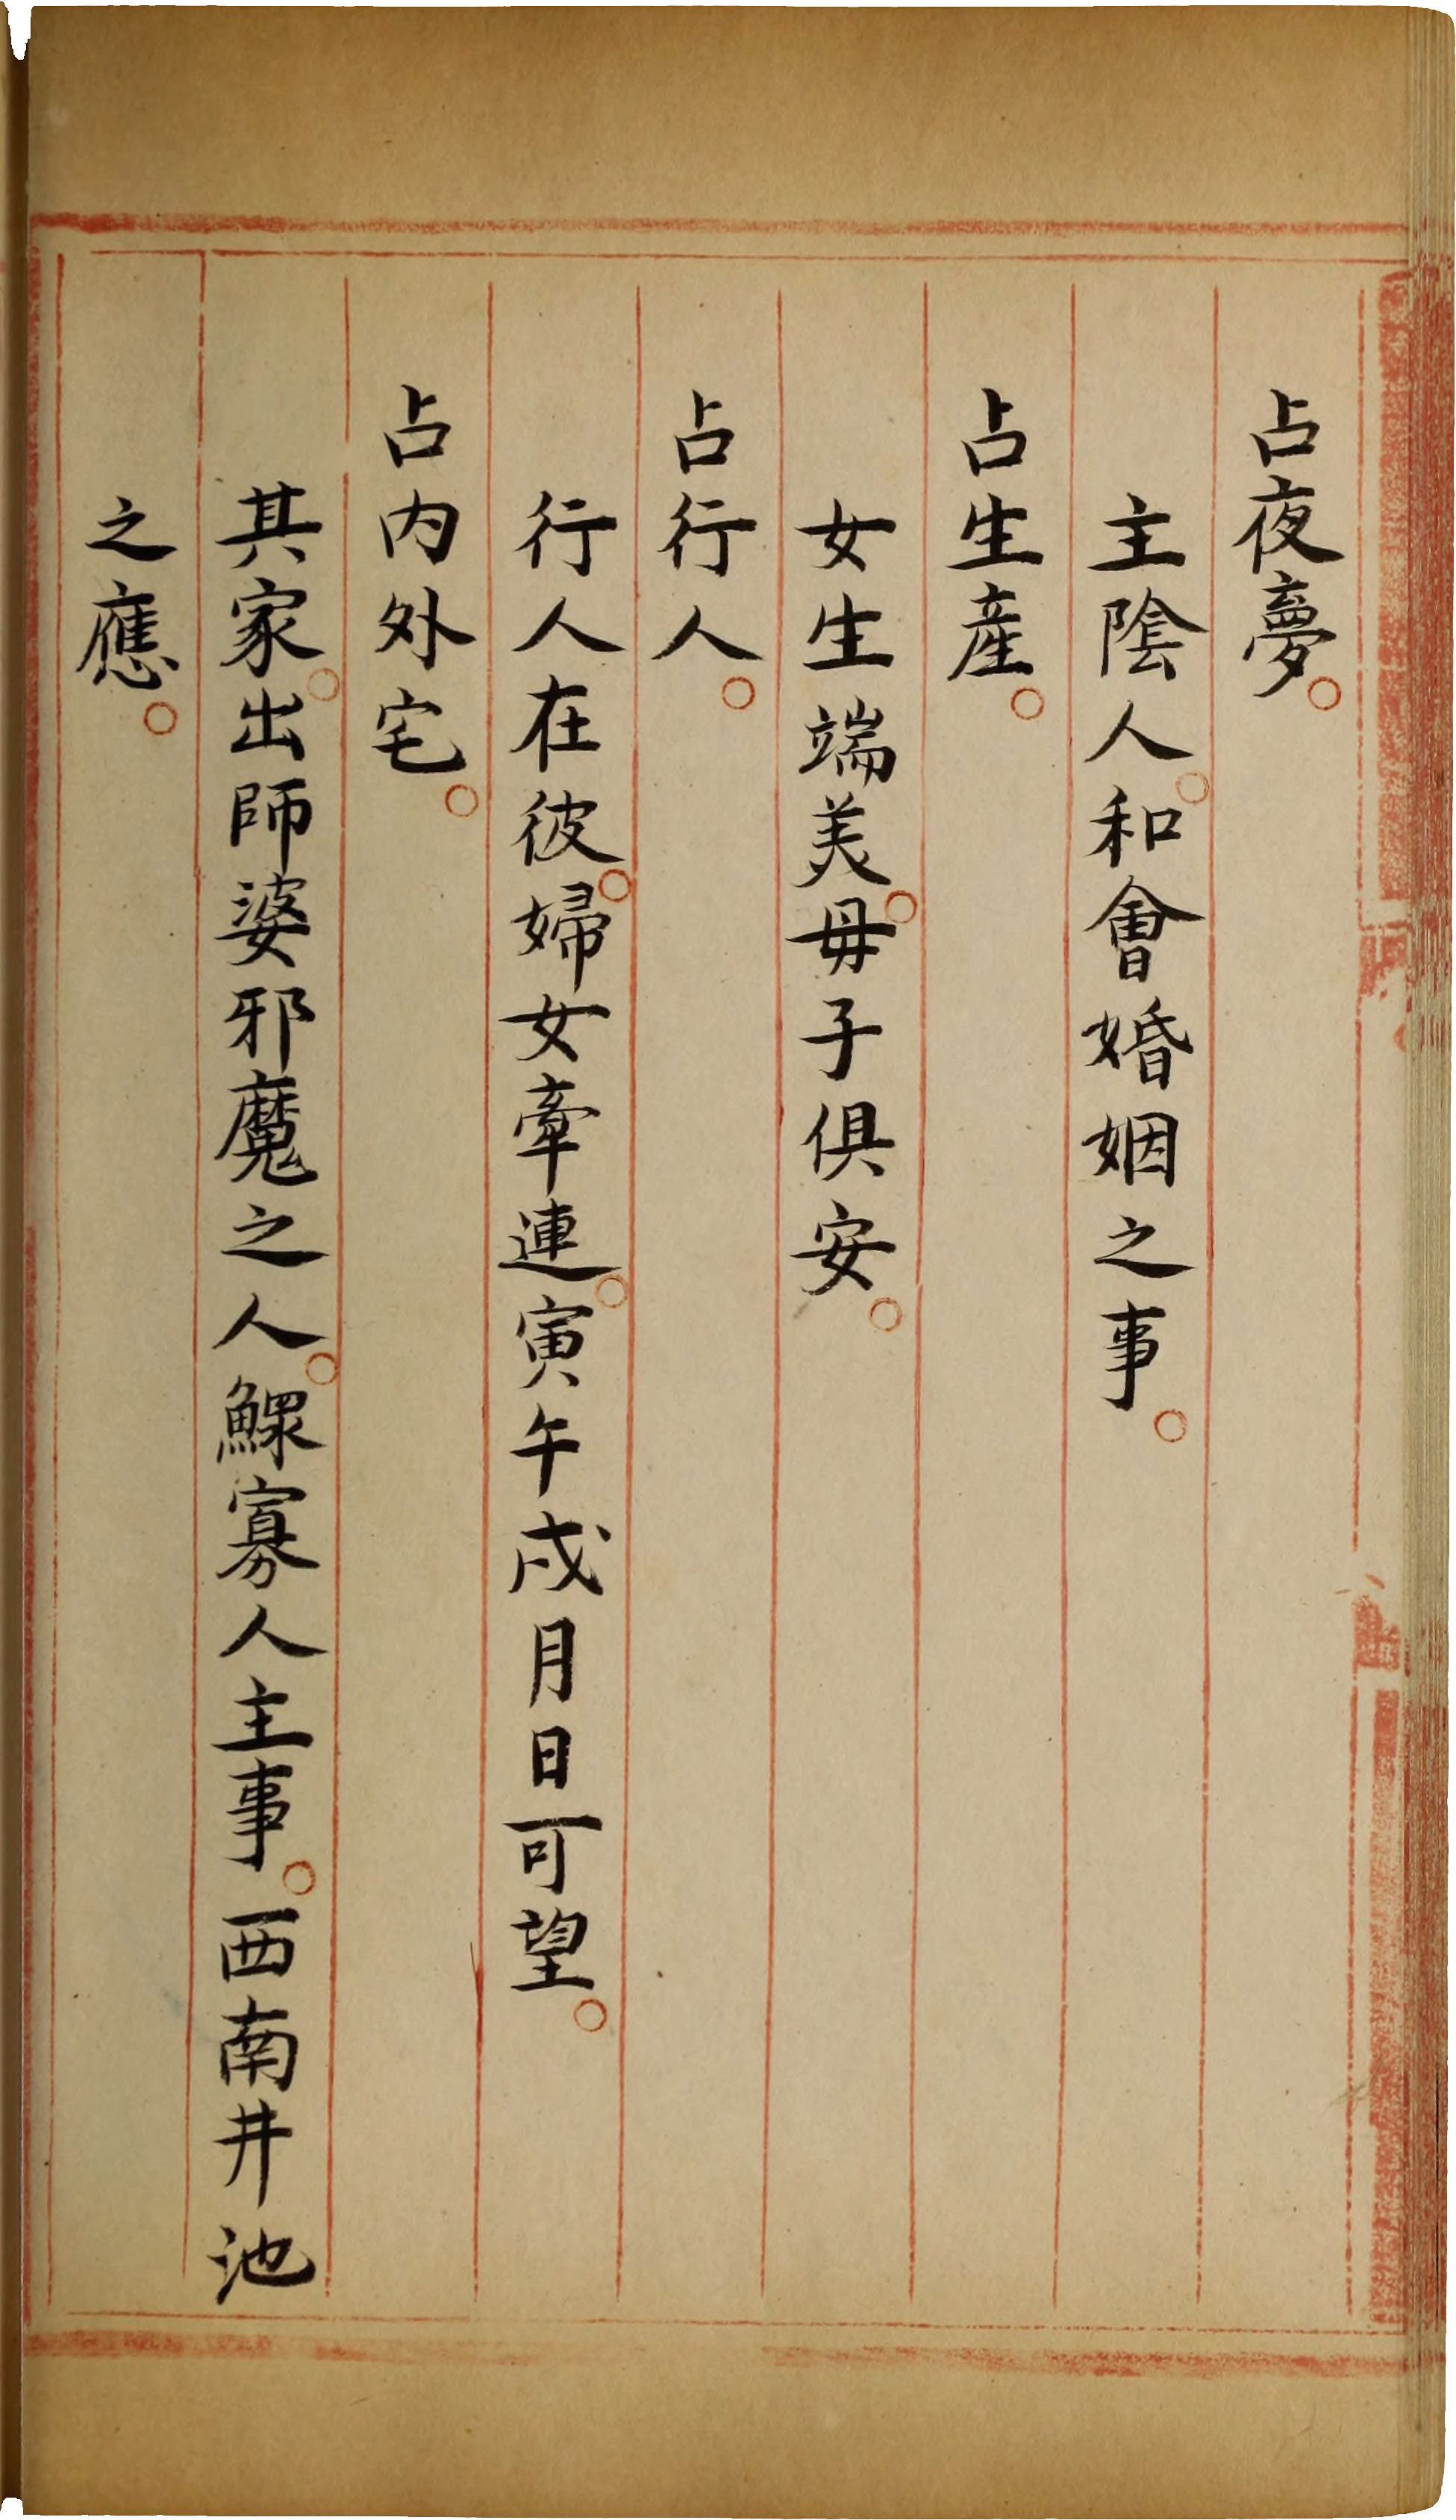 占夜夢。
主陰人。和會婚姻之事。
占生産。
女生端美。母子俱安。
占行人。
行人在彼。婦女牽連。寅午戌月日可望。
占内外宅。
其家。出師婆邪魔之人。鰥寡人主事。西南井池
之應。